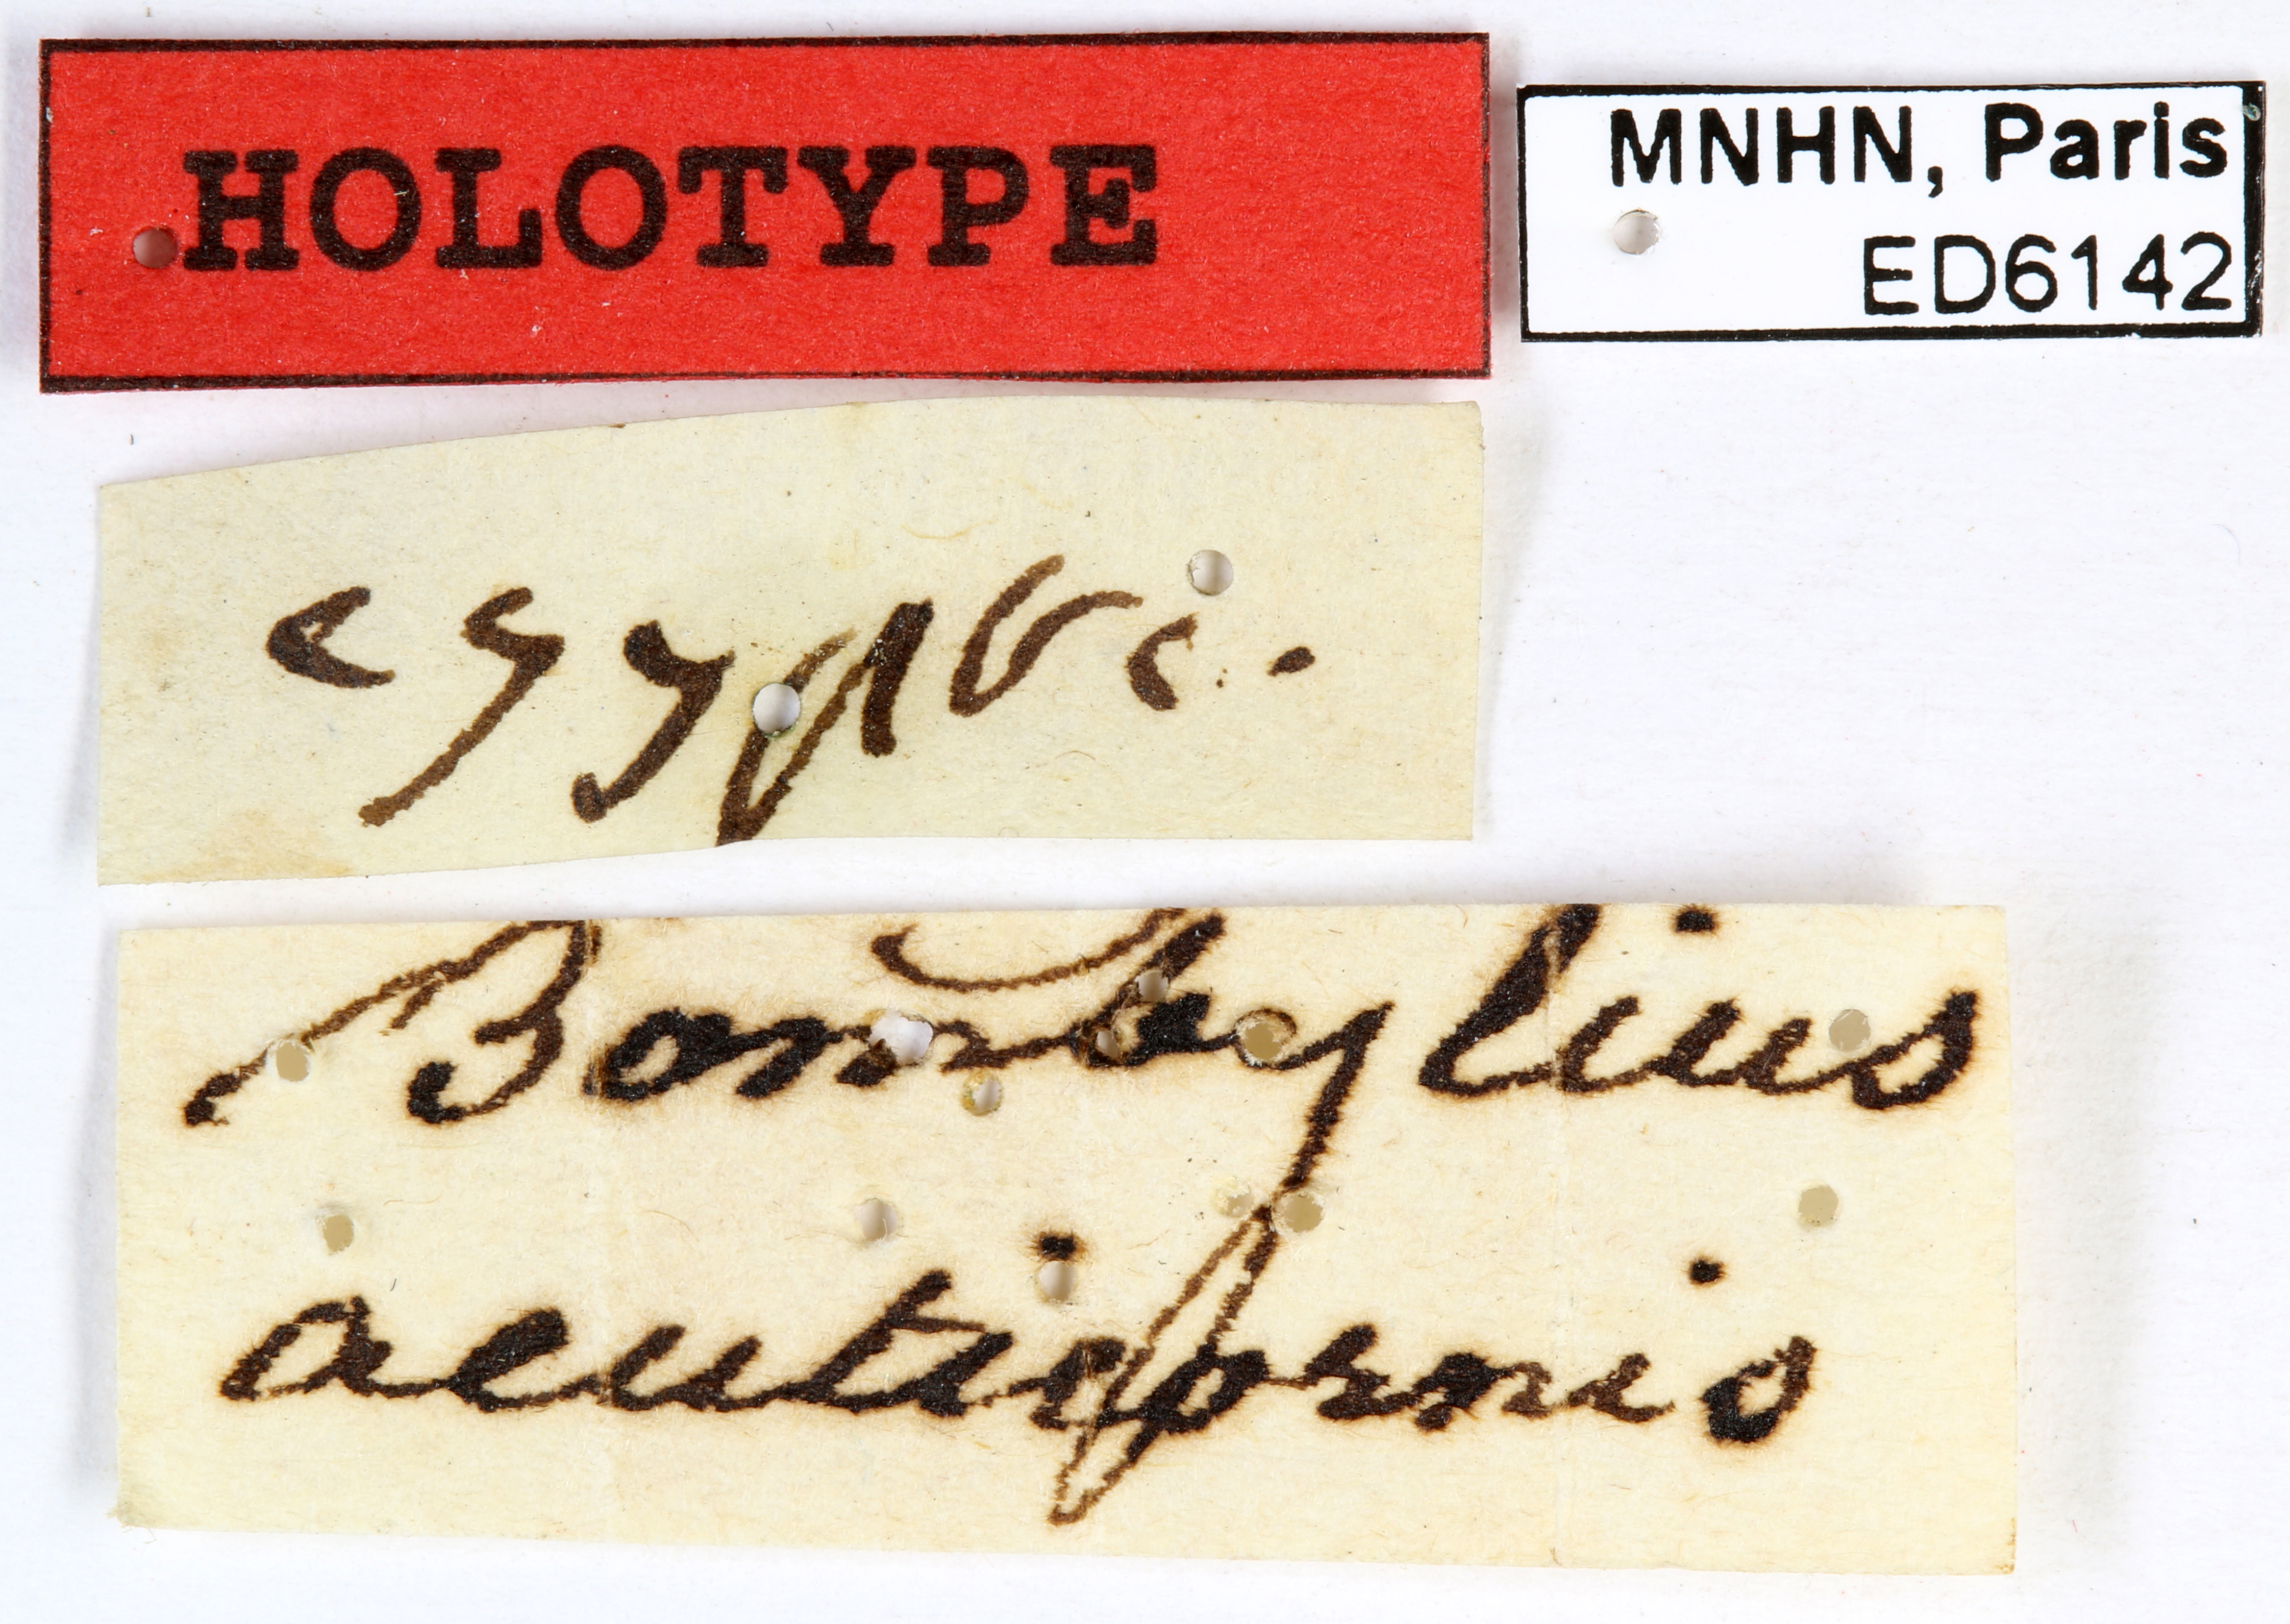 HOLOTYPE
MNHN, Paris
ED6142
egypte.
Bombylius
acuticornis